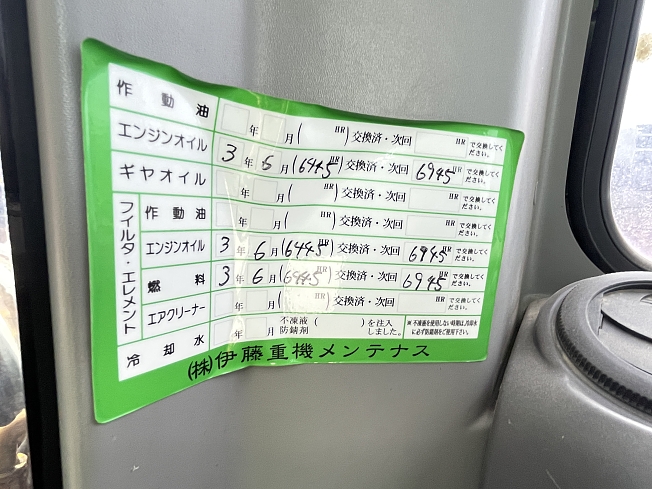 作動油 年 月( HR)交換済・次回 HRで交換してください。
エンジンオイル 3年6月(6445HR)交換済・次回 6945HRで交換してください。
ギヤオイル 年 月( HR)交換済・次回 HRで交換してください。
フィルタ・エレメント
作動油 年 月( HR)交換済・次回 HRで交換してください。
エンジンオイル 3年6月(6445HR)交換済・次回 6945HRで交換してください。
燃料 3年6月(6445HR)交換済・次回 6945HRで交換してください。
エアクリーナー 年 月( HR)交換済・次回 HRで交換してください。
冷却水 年 月 不凍液 防錆剤( )を注入しました。 ※不凍液を使用しない時期は冷却水に必ず防錆剤をご使用下さい。
㈱伊藤重機メンテナス